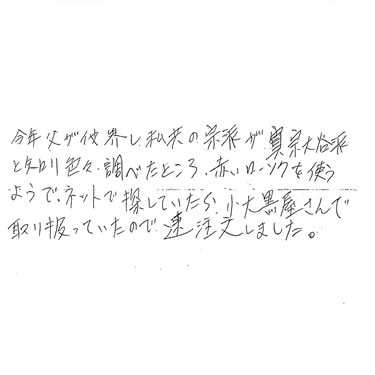 今年父が他界し私共の宗派が真宗大谷派
と知り色々調べたところ、赤いローソクを使う
ようで、ネットで探していたら、小大黒屋さんで
取り扱っていたので速注文しました。